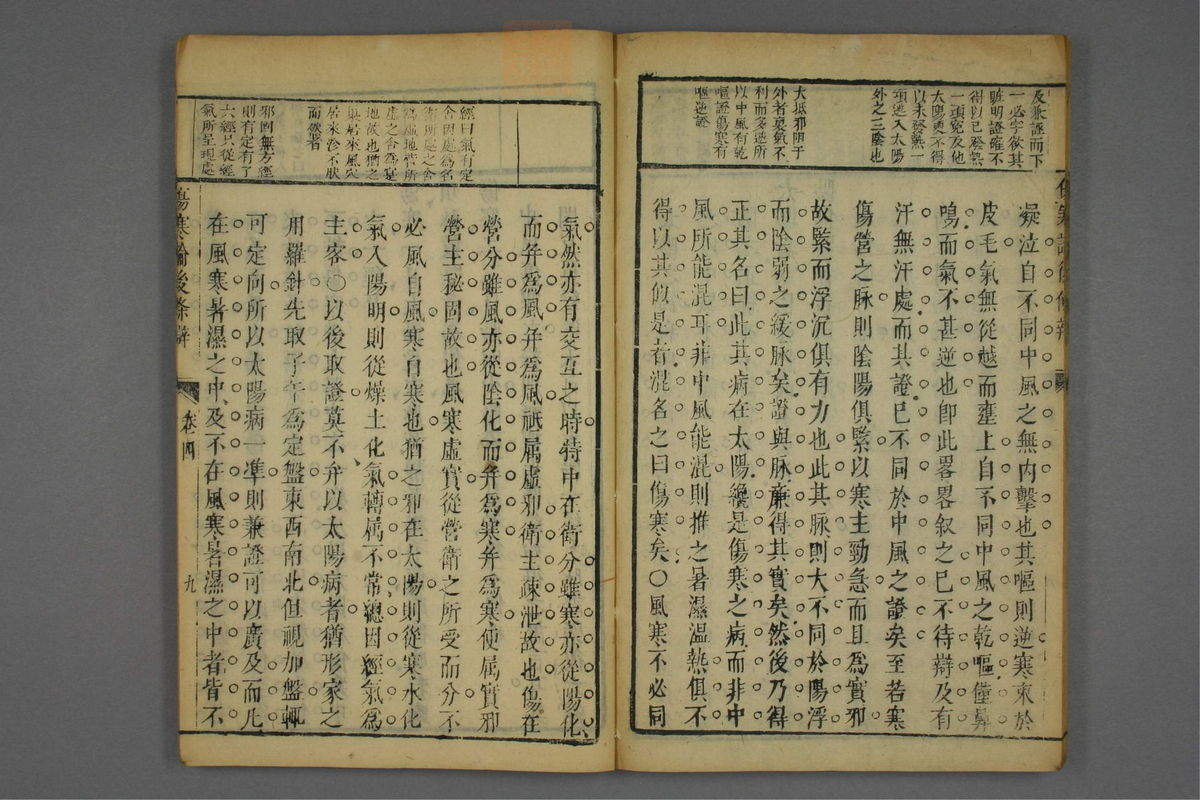 反兼証而下
一必字欲其
賍明證確不
得以已發熱
一項宛及他
太陽更不得
以未發熱一
項迯入太陽
外之三陰也
大抵邪阻于
外者裏氣不
利而多逆所
以中風有乾
嘔證傷寒有
嘔逆證
凝泣自不同中風之無內擊也其嘔則逆寒束於
皮毛氣無從越而壅上自不同中風之乾嘔僅鼻
鳴而氣不甚逆也卽此畧畧叙之已不待辯及有
汗無汗處而其證已不同於中風之證矣至若寒
傷營之脉則陰陽俱緊以寒主勁急而且爲實邪
故緊而浮沉俱有力也此其脉則大不同於陽浮
而陰弱之緩脉矣證與脉兼得其實矣然後乃得
正其名曰此其病在太陽纔是傷寒之病而非中
風所能混耳非中風能混則推之暑濕溫熱俱不
得以其似是者混名之曰傷寒矣〇風寒不必同
經曰氣有定
舍因處爲名
衛所處之舍
爲虛地營所
處之舍爲實
地故也猶之
與居來風穴
居來沴不狀
而然者
邪固無方經
則有定有了
六經只從經
氣所呈現處
氣然亦有交互之時特中在衛分雖寒亦從陽化
而弁爲風弁爲風祇属虛邪衛主疎泄故也傷在
營分雖風亦從陰化而弁爲寒弁爲寒便属實邪
營主秘固故也風寒虛實從營衛之所受而分不
必風自風寒自寒也猶之邪在太陽則從寒水化
氣入陽明則從燥土化氣轉属不常總因經氣爲
主客〇以後取證莫不弁以太陽病者猶形家之
用羅針先取子午爲定盤東西南北但視加盤輒
可定向所以太陽病一凖則兼證可以廣及而凡
在風寒暑濕之中及不在風寒暑濕之中者皆不
傷寒論後條辯
卷四
九